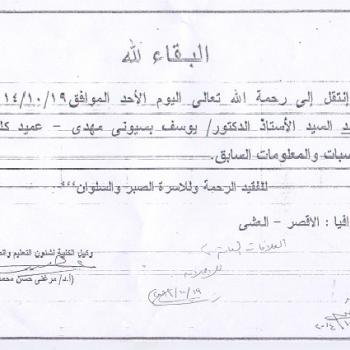 البقاء لله
إنتقل إلى رحمة الله تعالى اليوم الأحد الموافق ١٤/١٠/١٩
السيد الأستاذ الدكتور/ يوسف بسيونى مهدى - عميد
والمعلومات السابق.
للفقيد الرحمة وللاسرة الصبر والسلوان،،،
الاقصر - العشى
وكيل الكلية لشئون التعليم
العلاقات العامة
(أ.د/ مرغنى حسن محمد